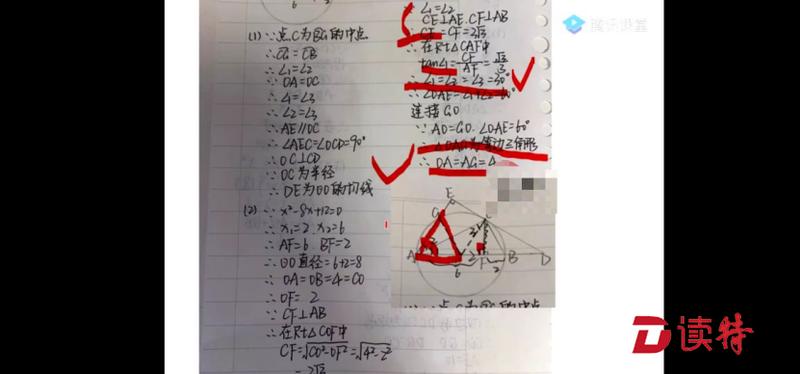 6 2
(1) ∵点C为BG的中点
∴CG=CB
∴∠1=∠2
∵OA=OC
∴∠1=∠3
∴∠2=∠3
∴AE∥OC
∴∠AEC=∠OCD=90°
∴OC⊥CD
∵OC为半径
∴DE为⊙O的切线
(2) ∵x²-8x+12=0
∴x₁=2 x₂=6
∴AF=6 BF=2
∴⊙O直径=6+2=8
∴OA=OB=4=CO
∴OF=2
∵CF⊥AB
∴在Rt△COF中
CF=√CO²-OF²=√4²-2²
=2√3
∵∠1=∠2
CE⊥AE.CF⊥AB
∴CE=CF=2√3
∴在Rt△CAF中
tan∠1=CF/AF=√3/3
∴∠1=∠2=∠3=30°
∴∠OAE=∠1+∠2=60°
连接GO
∵AO=GO.∠OAE=60°
∴△OAG为等边三角形
∴OA=AG=4
E
G
A B D
6 2
腾讯课堂
读特